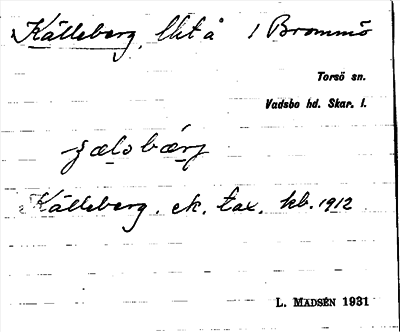 Kålleberg, Utå 1 Brommö
Torsö sn.
Vadsbo hd. Skar. l.
Kålleberg. ek. tax. kb. 1912
L. MADSÉN 1931